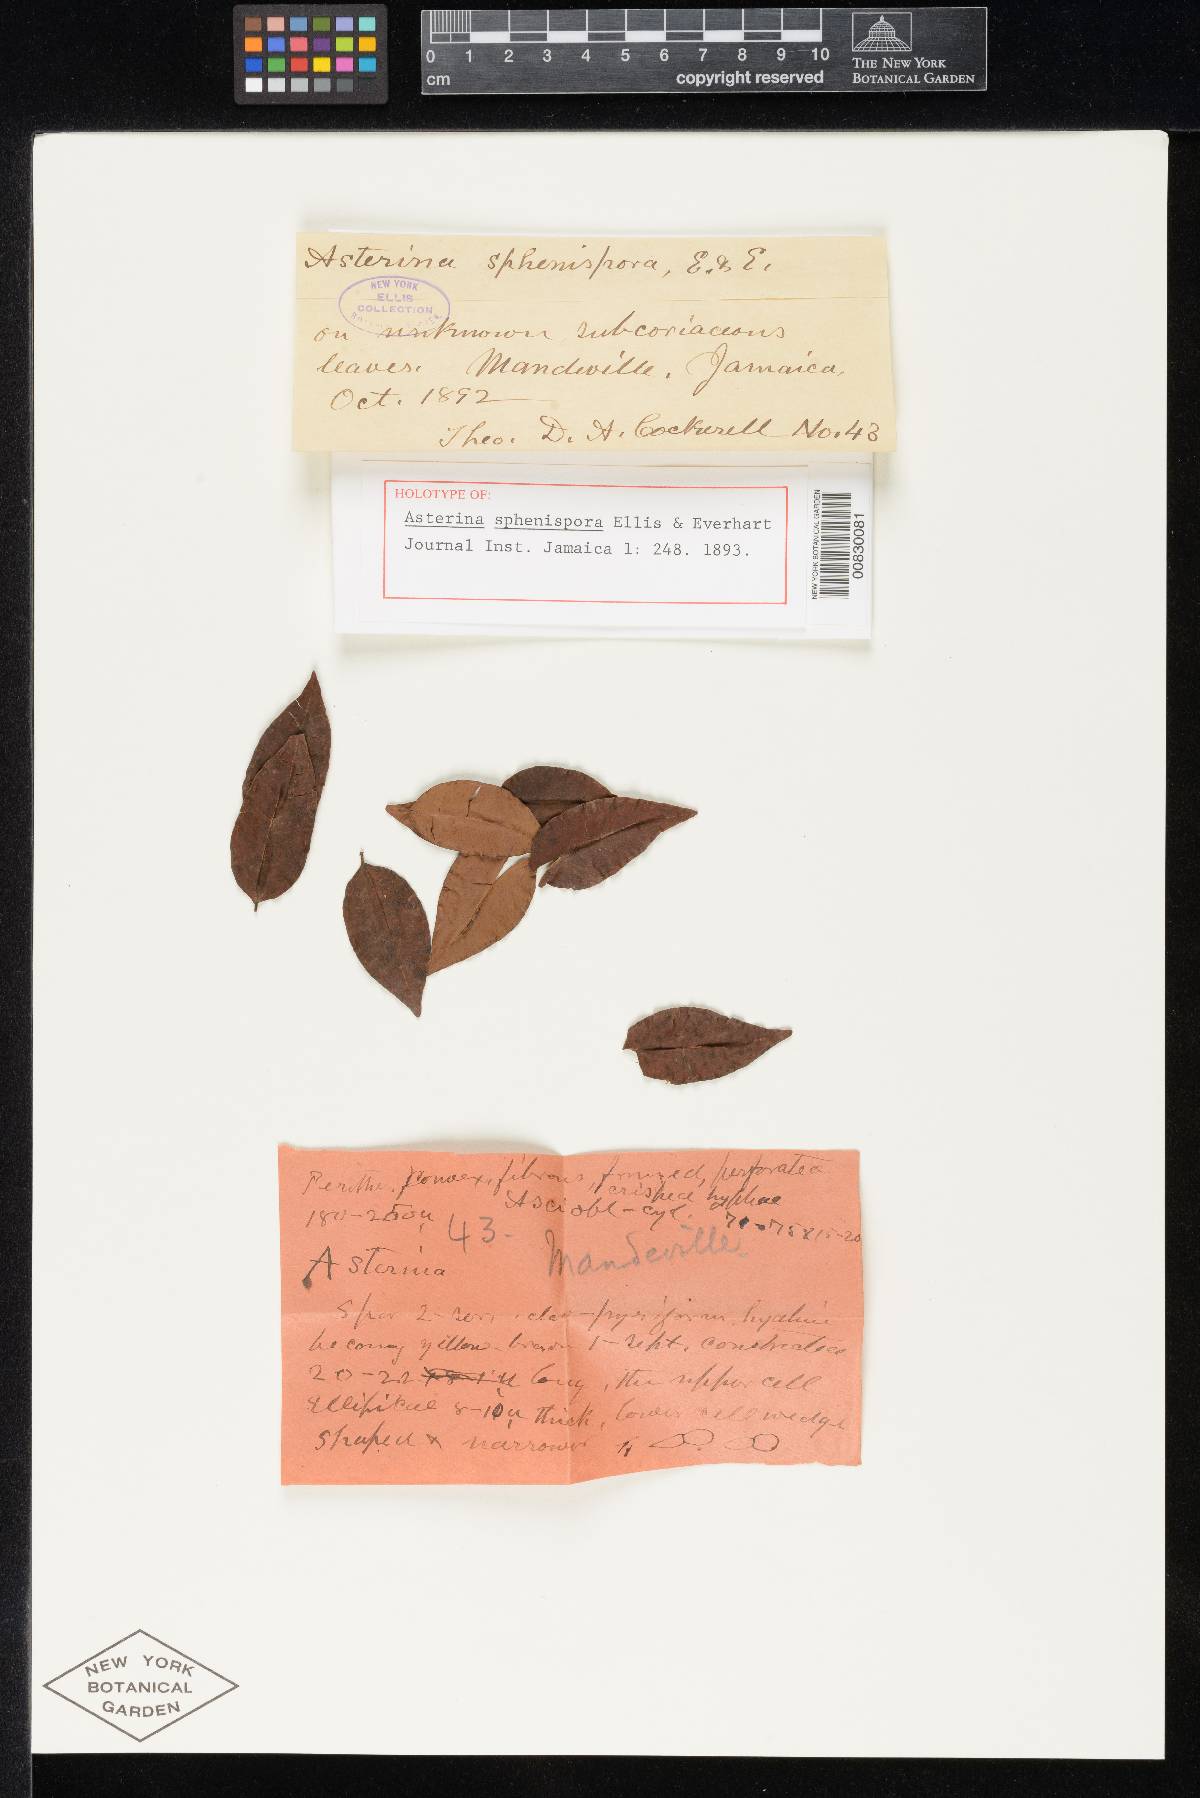 0 1 2 3 4 5 6 7 8 9 10
cm
copyright reserved
THE NEW YORK
BOTANICAL GARDEN
Asterina sphenispora, E. & E.
NEW YORK
ELLIS
COLLECTION
on unknown subcoriaceous
leaves. Mandeville, Jamaica,
Oct. 1892
Theo. D. A. Cockerell No. 43
HOLOTYPE OF:
Asterina sphenispora Ellis & Everhart
Journal Inst. Jamaica 1: 248. 1893.
NEW YORK BOTANICAL GARDEN
00830081
Perithe. convex, fibrous, fringed, perforated
crisped hyphae
180-250µ Asci obl-cyl. 70-75 x 15-20
43. Mandeville
Asterina
Spor 2-seri. clav-pyriform, hyaline
becoming yellow-brown 1-sept. constricted
20-22 long, the upper cell
Elliptical 8-10µ thick, lower cell wedge
shaped & narrower
NEW YORK
BOTANICAL
GARDEN